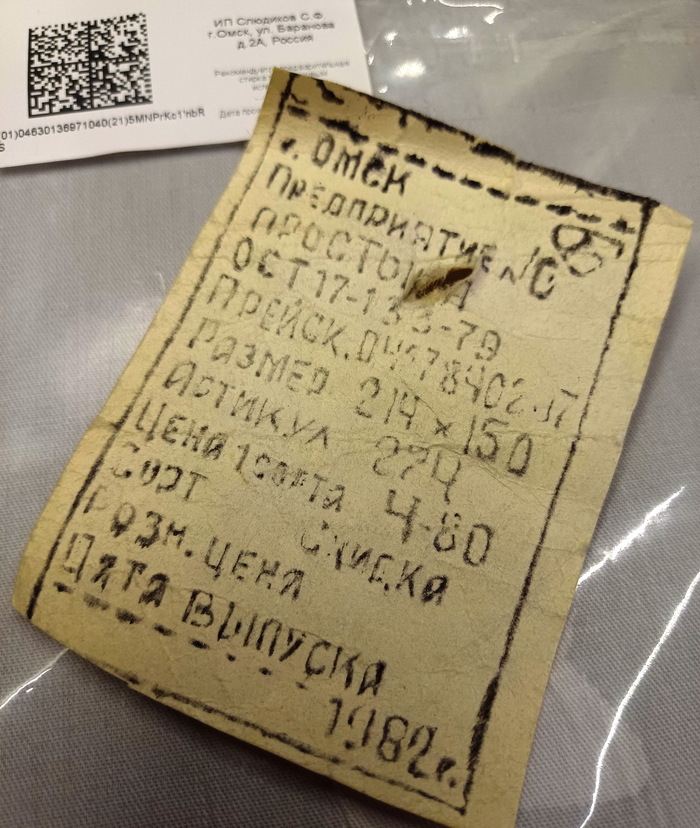 ИП Слюдиков С.Ф
г.Омск, ул. Баранова
д.2А, Россия
01)04630136971040(21)5MNPrKc1'hbR
г. ОМСК
ПРЕДПРИЯТИЕ
ПРОСТЫНЯ
ОСТ 17-133-79
ПРЕЙСК.
РАЗМЕР 214 х 150
АРТИКУЛ 274
ЦЕНА 1 сорта 4-80
Сорт Скидка
РОЗН. ЦЕНА
ДАТА ВЫПУСКА
1982г.